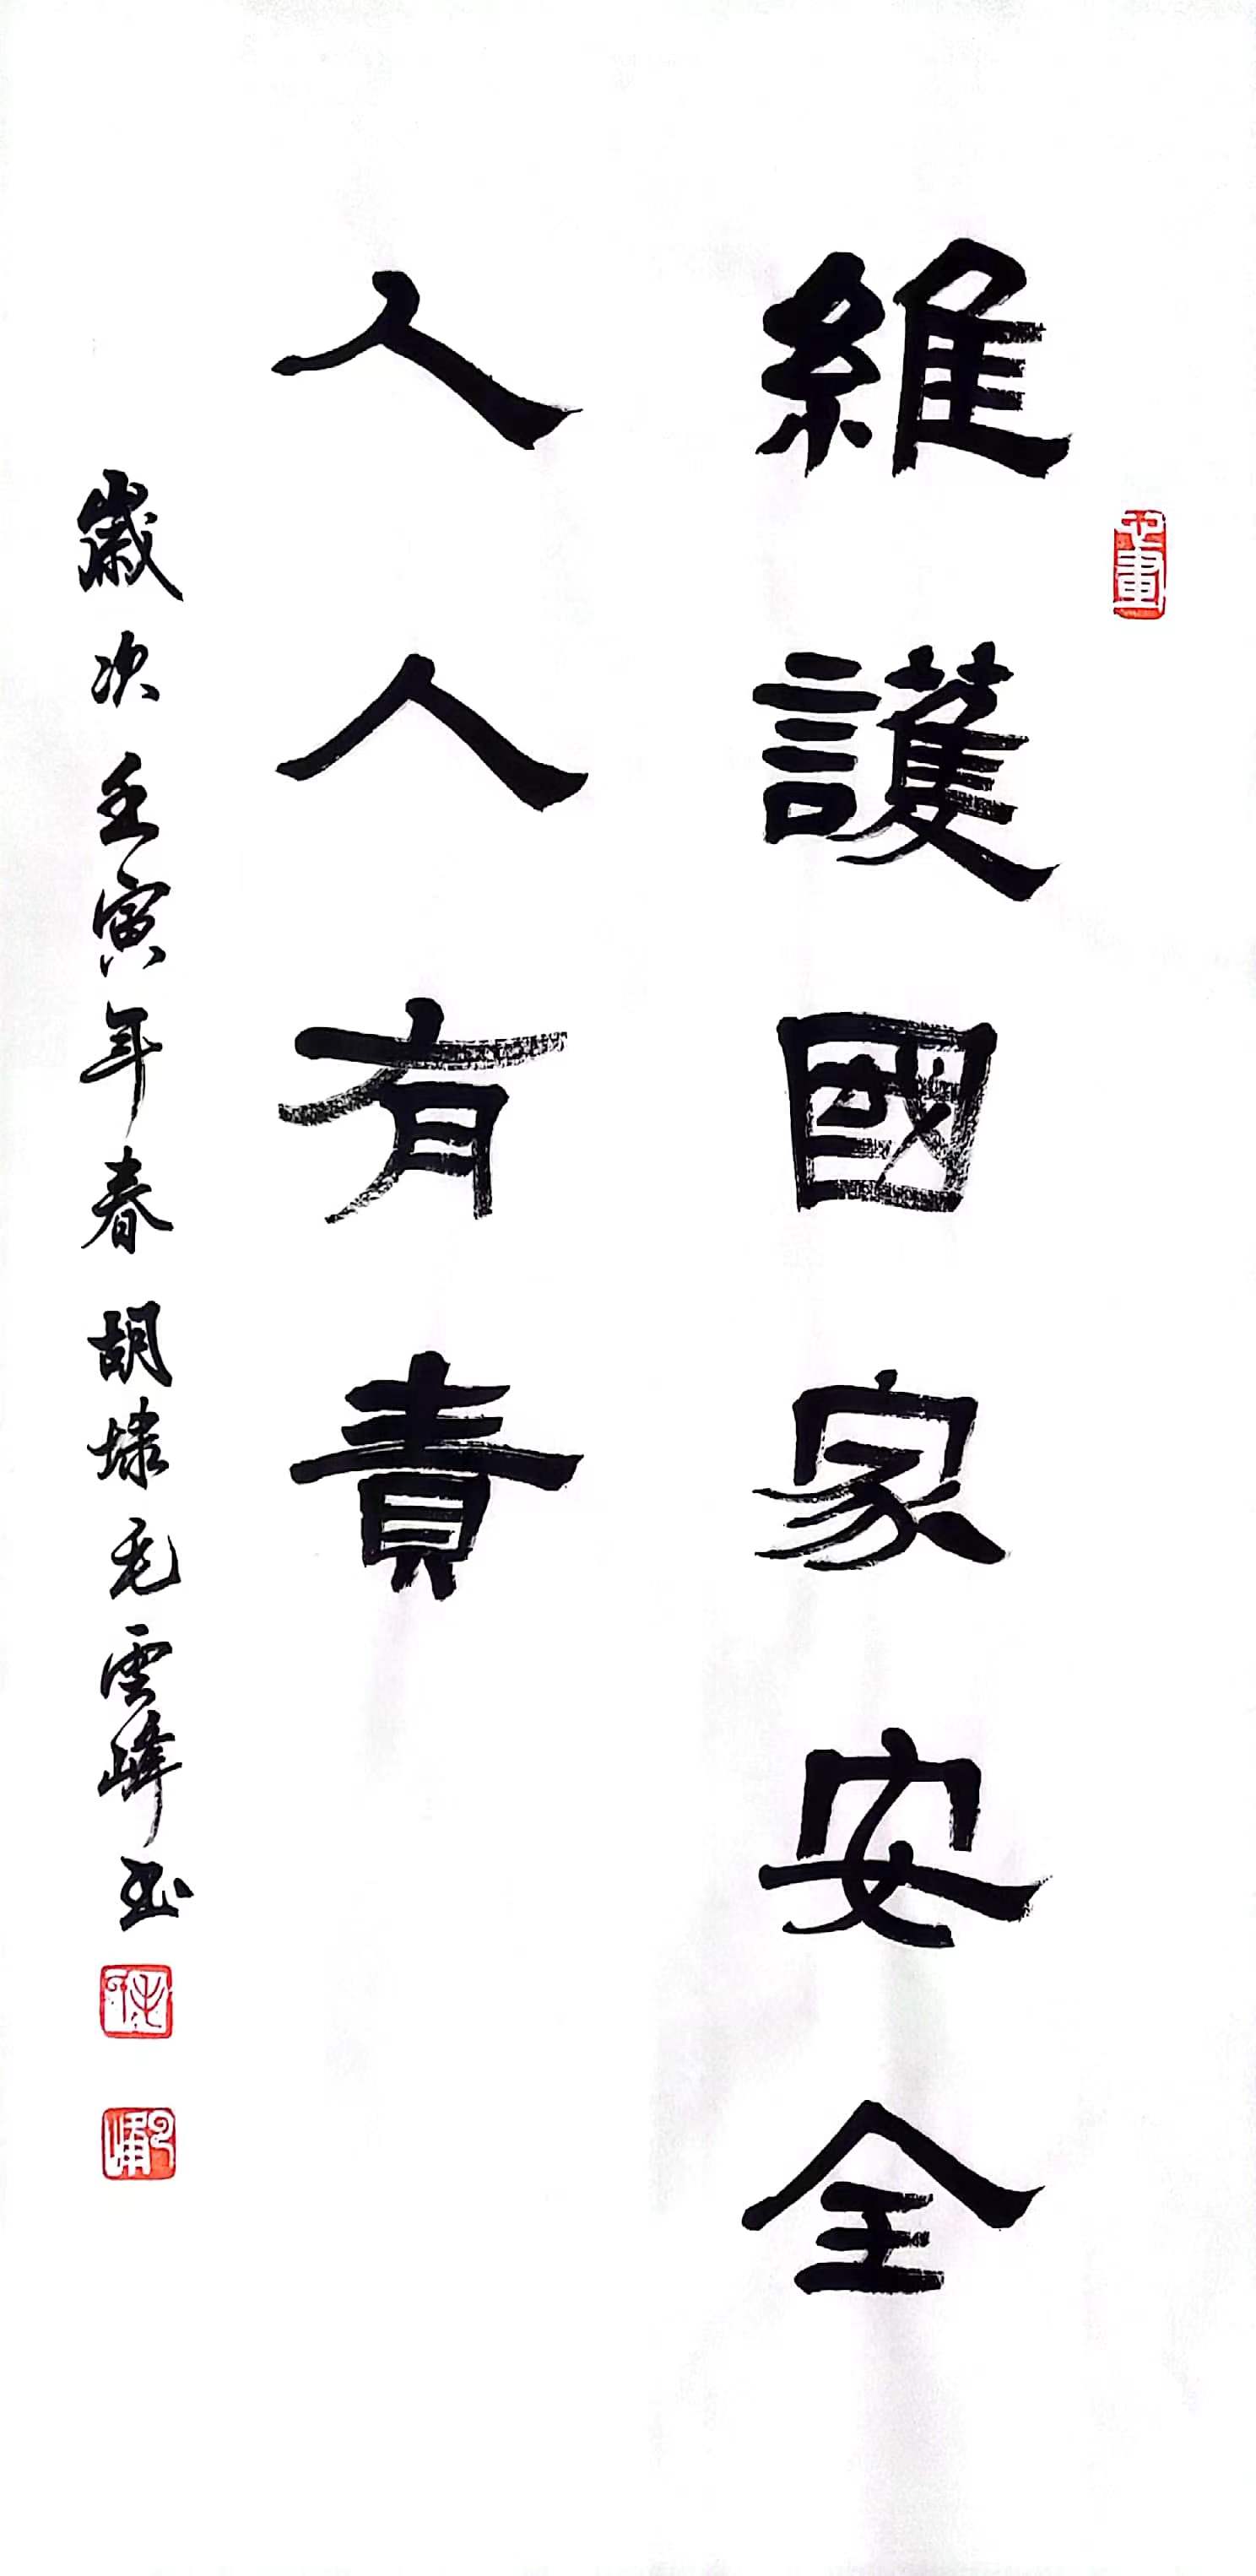 維護國家安全
人人有責
歲次壬寅年春胡埭毛雲峰書